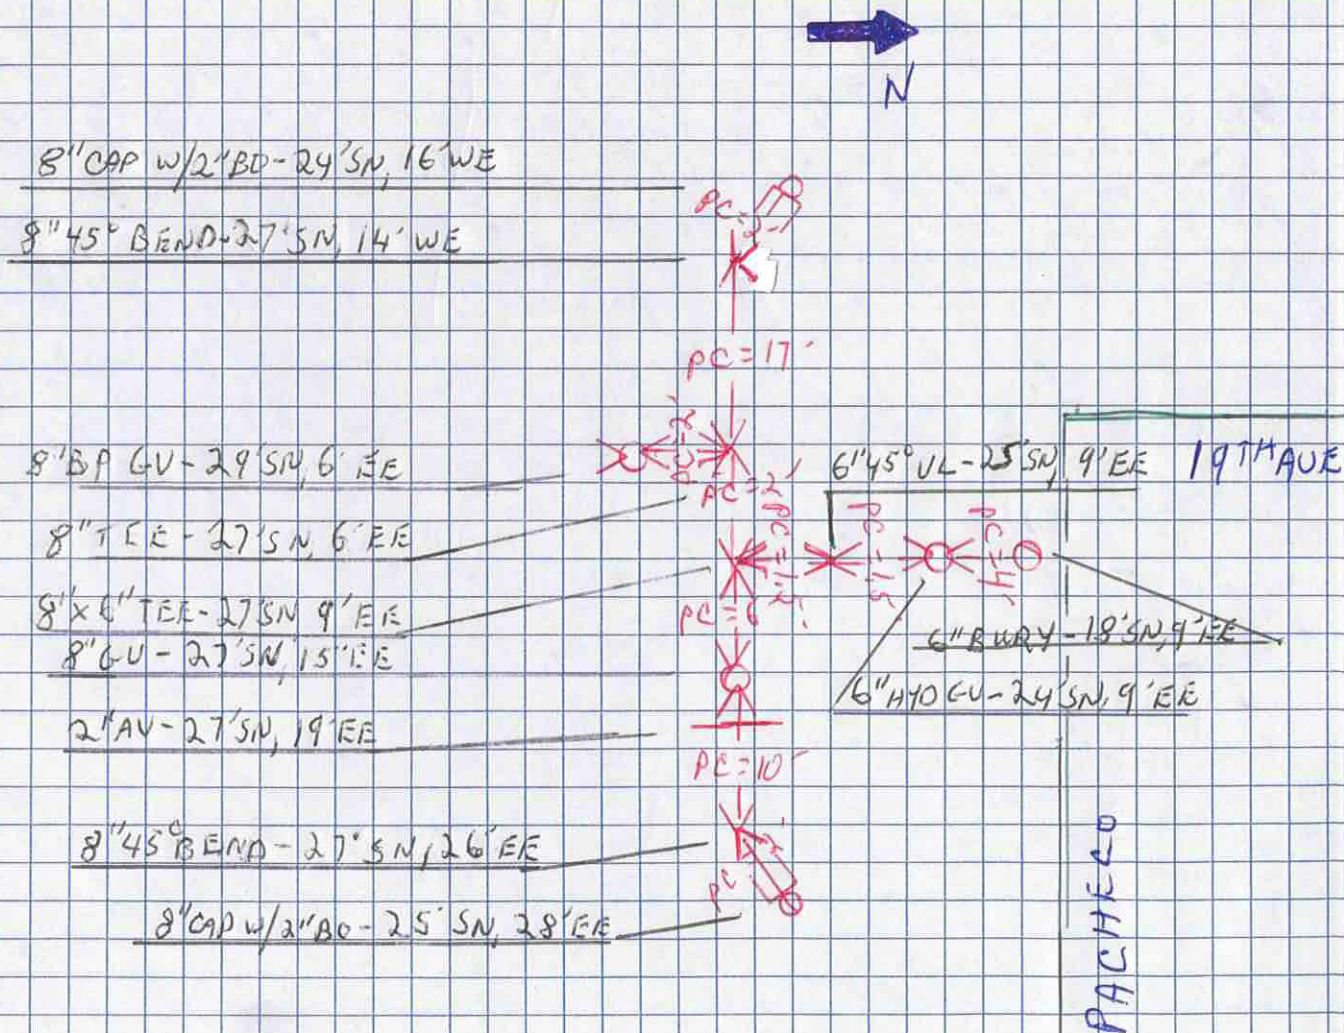 N
8" CAP W/2"BO-24'SN, 16'WE
8" 45° BEND-27'SN, 14' WE
PC=2'
PC=17'
PC=2'
8"BP GV-29'SN, 6' EE
PC=2'
6"45° VL-25'SN, 9'EE
19TH AVE
8"TEE-27'SN, 6'EE
PC=1.5'
PC=1.5'
PC=4'
8"x6" TEE-27'SN 9'EE
PC=6'
6"BWRY-18'SN, 9'EE
8"GV-27'SN, 15'EE
6"HYD GV-24'SN, 9'EE
2"AV-27'SN, 19'EE
PC=10'
8"45° BEND-27'SN, 26'EE
PC 2'
8"CAP W/2"BO-25'SN, 28'EE
PACHECO